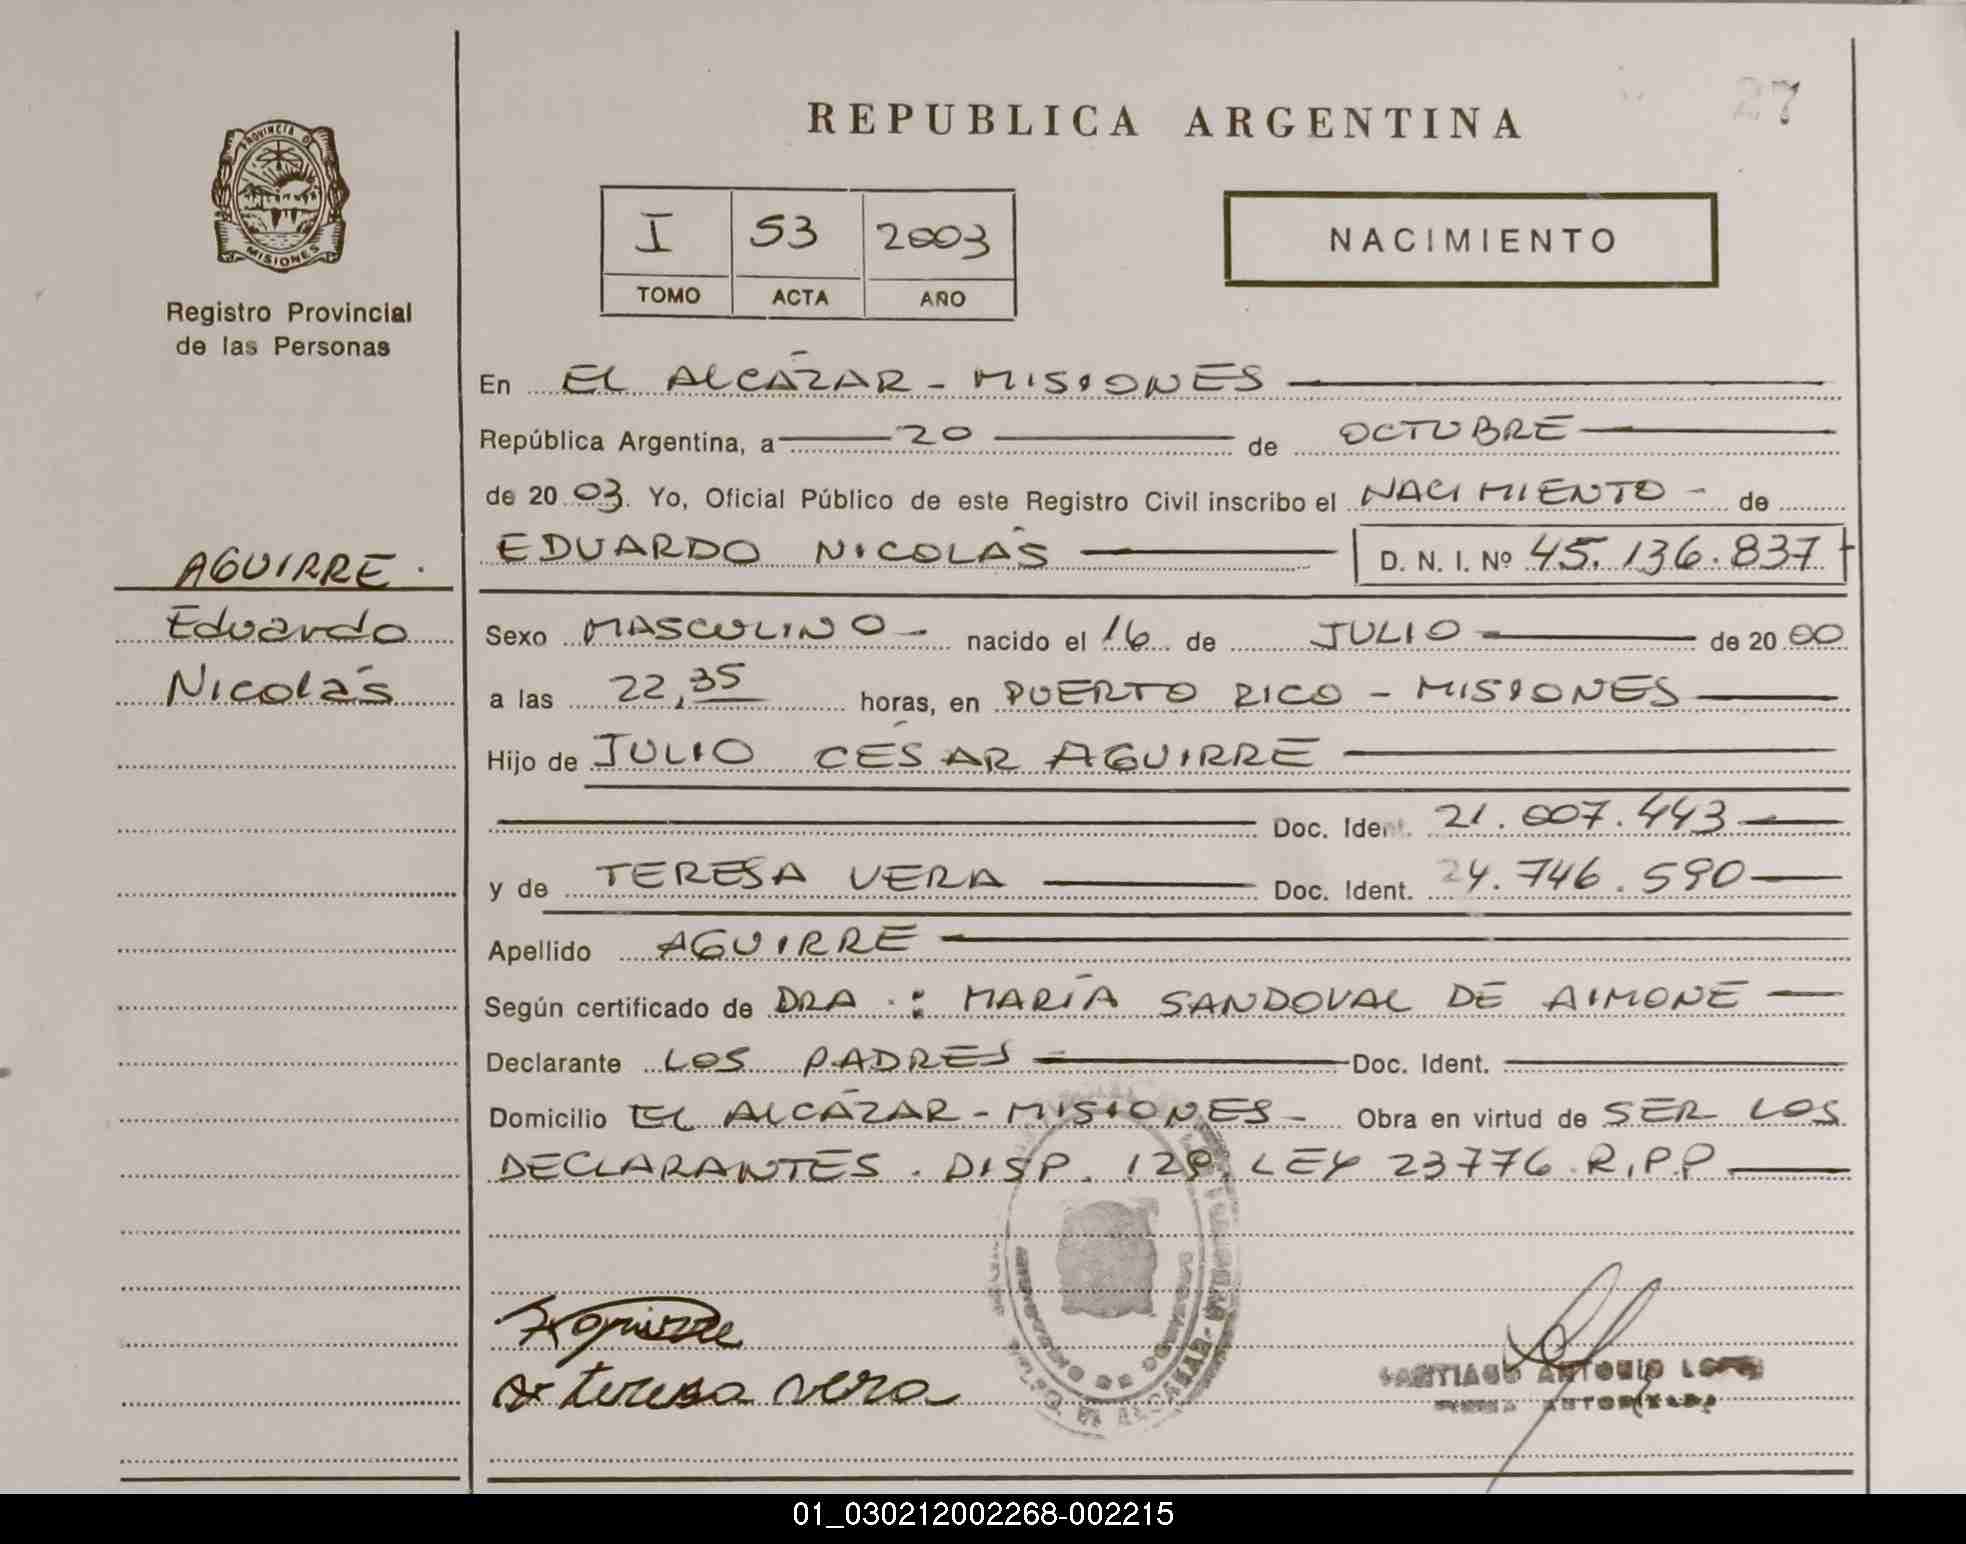 27
REPUBLICA ARGENTINA
PROVINCIA DE
MISIONES
I 53 2003
TOMO ACTA AÑO
NACIMIENTO
Registro Provincial
de las Personas
En EL ALCÁZAR - MISIONES
República Argentina, a 20 de OCTUBRE
de 20 03. Yo, Oficial Público de este Registro Civil inscribo el NACIMIENTO - de
EDUARDO NICOLÁS D. N. I. Nº 45.136.837
AGUIRRE.
Eduardo
Nicolás
Sexo MASCULINO - nacido el 16 de JULIO de 20 00
a las 22,35 horas, en PUERTO RICO - MISIONES
Hijo de JULIO CÉSAR AGUIRRE
Doc. Ident. 21.007.443
y de TERESA VERA Doc. Ident. 24.746.590
Apellido AGUIRRE
Según certificado de DRA.: MARÍA SANDOVAL DE AIMONE
Declarante LOS PADRES Doc. Ident.
Domicilio EL ALCÁZAR - MISIONES - Obra en virtud de SER LOS
DECLARANTES. DISP. 129. LEY 23776 R.P.P
Aguirre
teresa vera
SANTIAGO ANTONIO
01_030212002268-002215